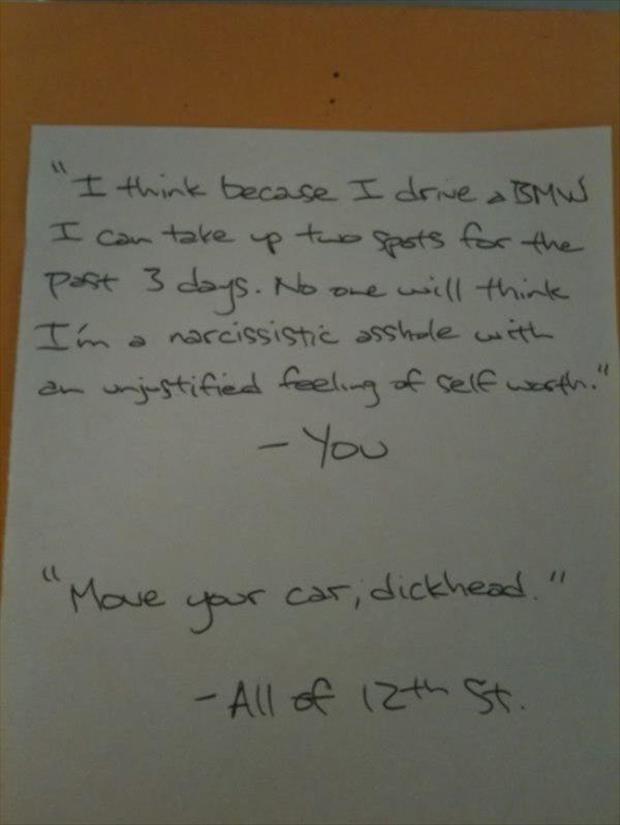 "I think becase I drive a BMW
I can take up two spots for the
past 3 days. No one will think
I'm a narcissistic asshole with
an unjustified feeling of self worth."
- You
"Move your car, dickhead."
- All of 12th St.